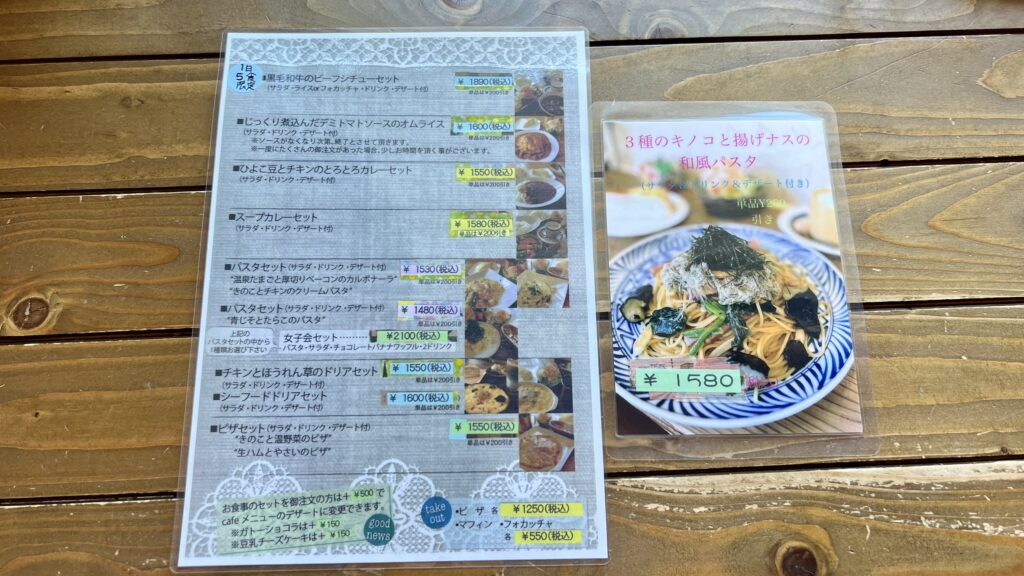 1日
5食
限定
■黒毛和牛のビーフシチューセット ¥ 1890(税込)
(サラダ・ライスorフォカッチャ・ドリンク・デザート付) 単品は¥200引き
■じっくり煮込んだデミトマトソースのオムライス ¥ 1600(税込)
(サラダ・ドリンク・デザート付) 単品は¥200引き
※ソースがなくなり次第、終了とさせて頂きます。
※一度にたくさんの御注文があった場合、少しお時間を頂く事がございます。
■ひよこ豆とチキンのとろとろカレーセット ¥ 1550(税込)
(サラダ・ドリンク・デザート付) 単品は¥200引き
■スープカレーセット ¥ 1580(税込)
(サラダ・ドリンク・デザート付) 単品は¥200引き
■パスタセット(サラダ・ドリンク・デザート付) ¥ 1530(税込)
"温泉たまごと厚切りベーコンのカルボナーラ" 単品は¥200引き
"きのことチキンのクリームパスタ"
■パスタセット(サラダ・ドリンク・デザート付) ¥ 1480(税込)
"青じそとたらこのパスタ" 単品は¥200引き
上記の
パスタセットの中から
1種類お選び下さい
女子会セット ......... ¥2100(税込)
パスタ・サラダ・チョコレートバナナワッフル・2ドリンク
■チキンとほうれん草のドリアセット ¥ 1550(税込)
(サラダ・ドリンク・デザート付) 単品は¥200引き
■シーフードドリアセット ¥ 1600(税込)
(サラダ・ドリンク・デザート付) 単品は¥200引き
■ピザセット(サラダ・ドリンク・デザート付) ¥ 1550(税込)
"きのこと温野菜のピザ" 単品は¥200引き
"生ハムとやさいのピザ"
お食事のセットを御注文の方は+ ¥500 で
cafe メニューのデザートに変更できます。
※ガトーショコラは+ ¥150
※豆乳チーズケーキは+ ¥150
good
news
take
out
•ピ ザ 各 ¥1250(税込)
•マフィン •フォカッチャ
各 ¥550(税込)
3種のキノコと揚げナスの
和風パスタ
(サラダ&ドリンク&デザート付き)
単品¥200
引き
¥ 1580